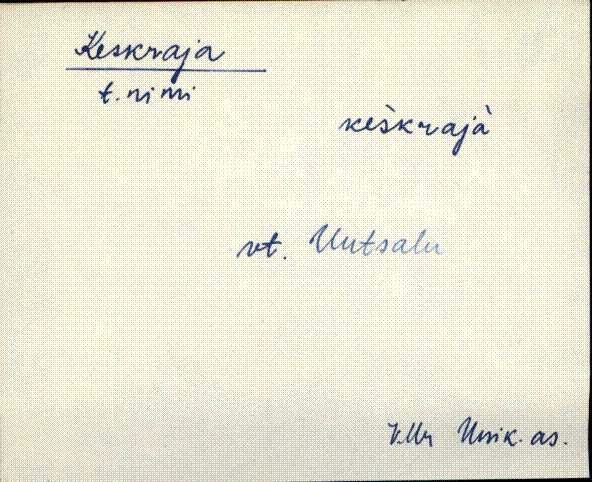 Keskraja
t. nimi
keškrajà
vt. Uutsalu
V.Mr Uusik. as.